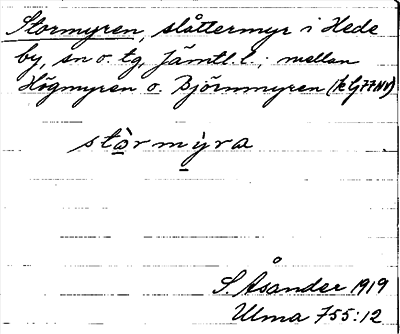 Stormyren, slåttermyr i Hede
by, sn o. tg, Jämtl. l.; mellan
Högmyren o. Björnmyren (k G77NV)
stòrmỳra
S. Åsander 1919
Ulma 755:12